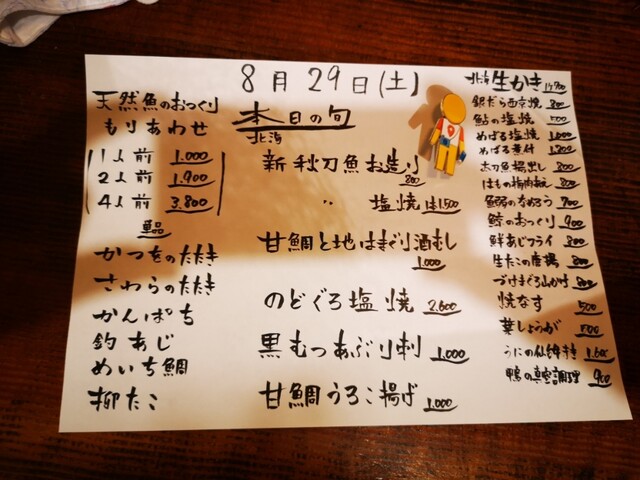 8月29日(土)
天然魚のおつくり
もりあわせ
1人前 1.000
2人前 1.900
4人前 3.800
単品
かつをのたたき
さわらのたたき
かんぱち
釣あじ
めいち鯛
柳たこ
本日の旬
北海
新秋刀魚お造り
800
〃 塩焼は1.500
甘鯛と地はまぐり酒むし
1.000
のどぐろ塩焼 2.600
黒むつあぶり刺 1.000
甘鯛うろこ揚げ 1.000
北海 生かき
銀だら西京焼 800
鮎の塩焼
めばる塩焼 1.000
めばる煮付 1.300
太刀魚揚出し 800
はもの梅肉和え 800
鯵のなめろう 700
鯨のおつくり 900
鮮あじフライ 800
生たこの唐揚 800
づけまぐろ山かけ 800
焼なす 500
葉しょうが 500
うにの 1.600
鴨の真空調理 900